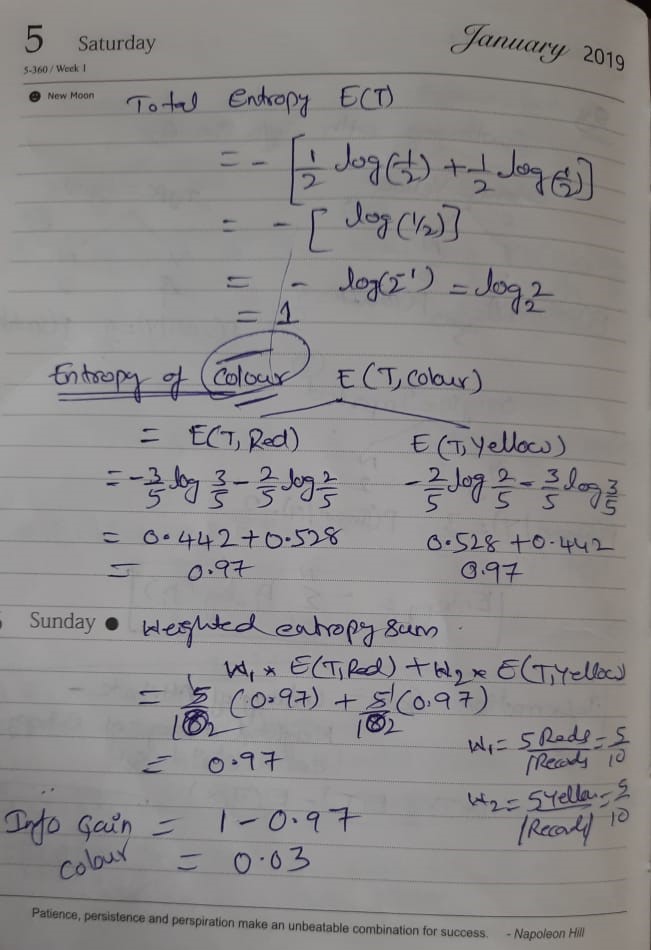 5 Saturday
January 2019
5-360 / Week 1
New Moon
Total Entropy E(T)
= - [1/2 log(1/2) + 1/2 log(1/2)]
= - [ log(1/2)]
= - log(2⁻¹) = log₂2
= 1
Entropy of Colour E(T, Colour)
= E(T, Red) E(T, Yellow)
= -3/5 log 3/5 - 2/5 log 2/5 -2/5 log 2/5 - 3/5 log 3/5
= 0.442 + 0.528 0.528 + 0.442
= 0.97 0.97
Sunday Weighted entropy sum.
W₁ * E(T, Red) + W₂ * E(T, Yellow)
= 5/10 (0.97) + 5/10 (0.97)
= 0.97
W₁ = 5 Reds/|Records = 5/10
W₂ = 5 Yellow/|Records| = 5/10
Info Gain = 1 - 0.97
Colour = 0.03
Patience, persistence and perspiration make an unbeatable combination for success. - Napoleon Hill